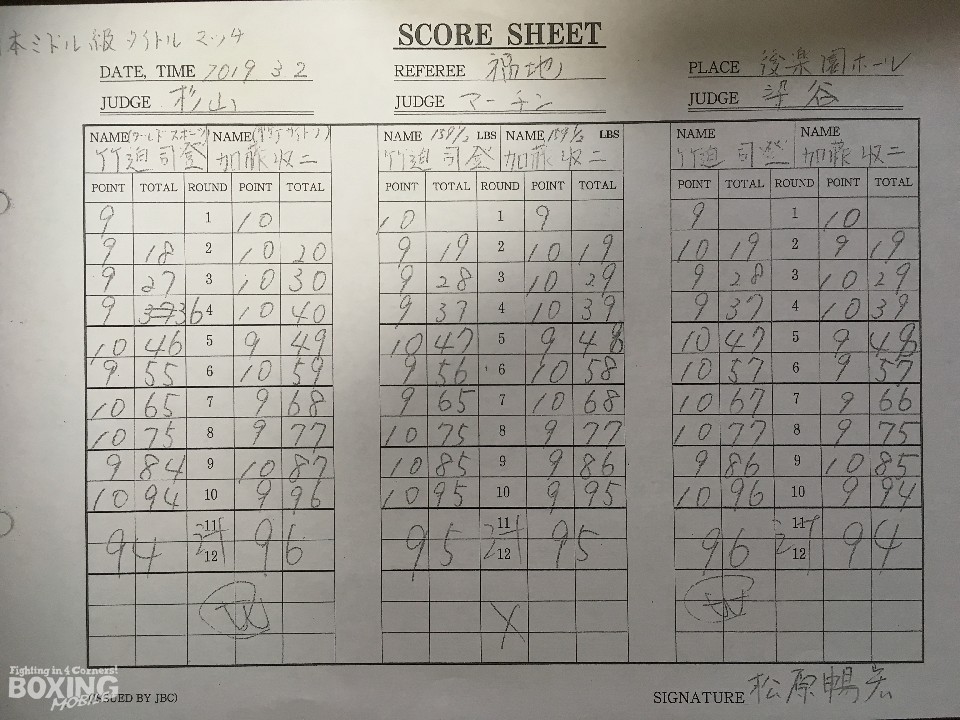 本ミドル級タイトルマッチ
SCORE SHEET
DATE, TIME 2019 3 2 REFEREE 福地 PLACE 後楽園ホール
JUDGE 杉山 JUDGE マーチン JUDGE 染谷
NAME(ワールドスポーツ) NAME NAME 159 1/2 LBS NAME 159 1/2 LBS NAME NAME
竹迫司登 加藤収二 竹迫司登 加藤収二 竹迫司登 加藤収二
POINT TOTAL ROUND POINT TOTAL POINT TOTAL ROUND POINT TOTAL POINT TOTAL ROUND POINT TOTAL
9 1 10 10 1 9 9 1 10
9 18 2 10 20 9 19 2 10 19 10 19 2 9 19
9 27 3 10 30 9 28 3 10 29 9 28 3 10 29
9 37 36 4 10 40 9 37 4 10 39 9 37 4 10 39
10 46 5 9 49 10 47 5 9 48 10 47 5 9 48
9 55 6 10 59 9 56 6 10 58 10 57 6 9 57
10 65 7 9 68 9 65 7 10 68 10 67 7 9 66
10 75 8 9 77 10 75 8 9 77 10 77 8 9 75
9 84 9 10 87 10 85 9 9 86 9 86 9 10 85
10 94 10 9 96 10 95 10 9 95 10 96 10 9 94
11 11 11
94 12 96 95 12 95 96 12 94
W X W
Fighting in 4 Corners!
BOXING
MOBILE
(ISSUED BY JBC) SIGNATURE 松原暢宏